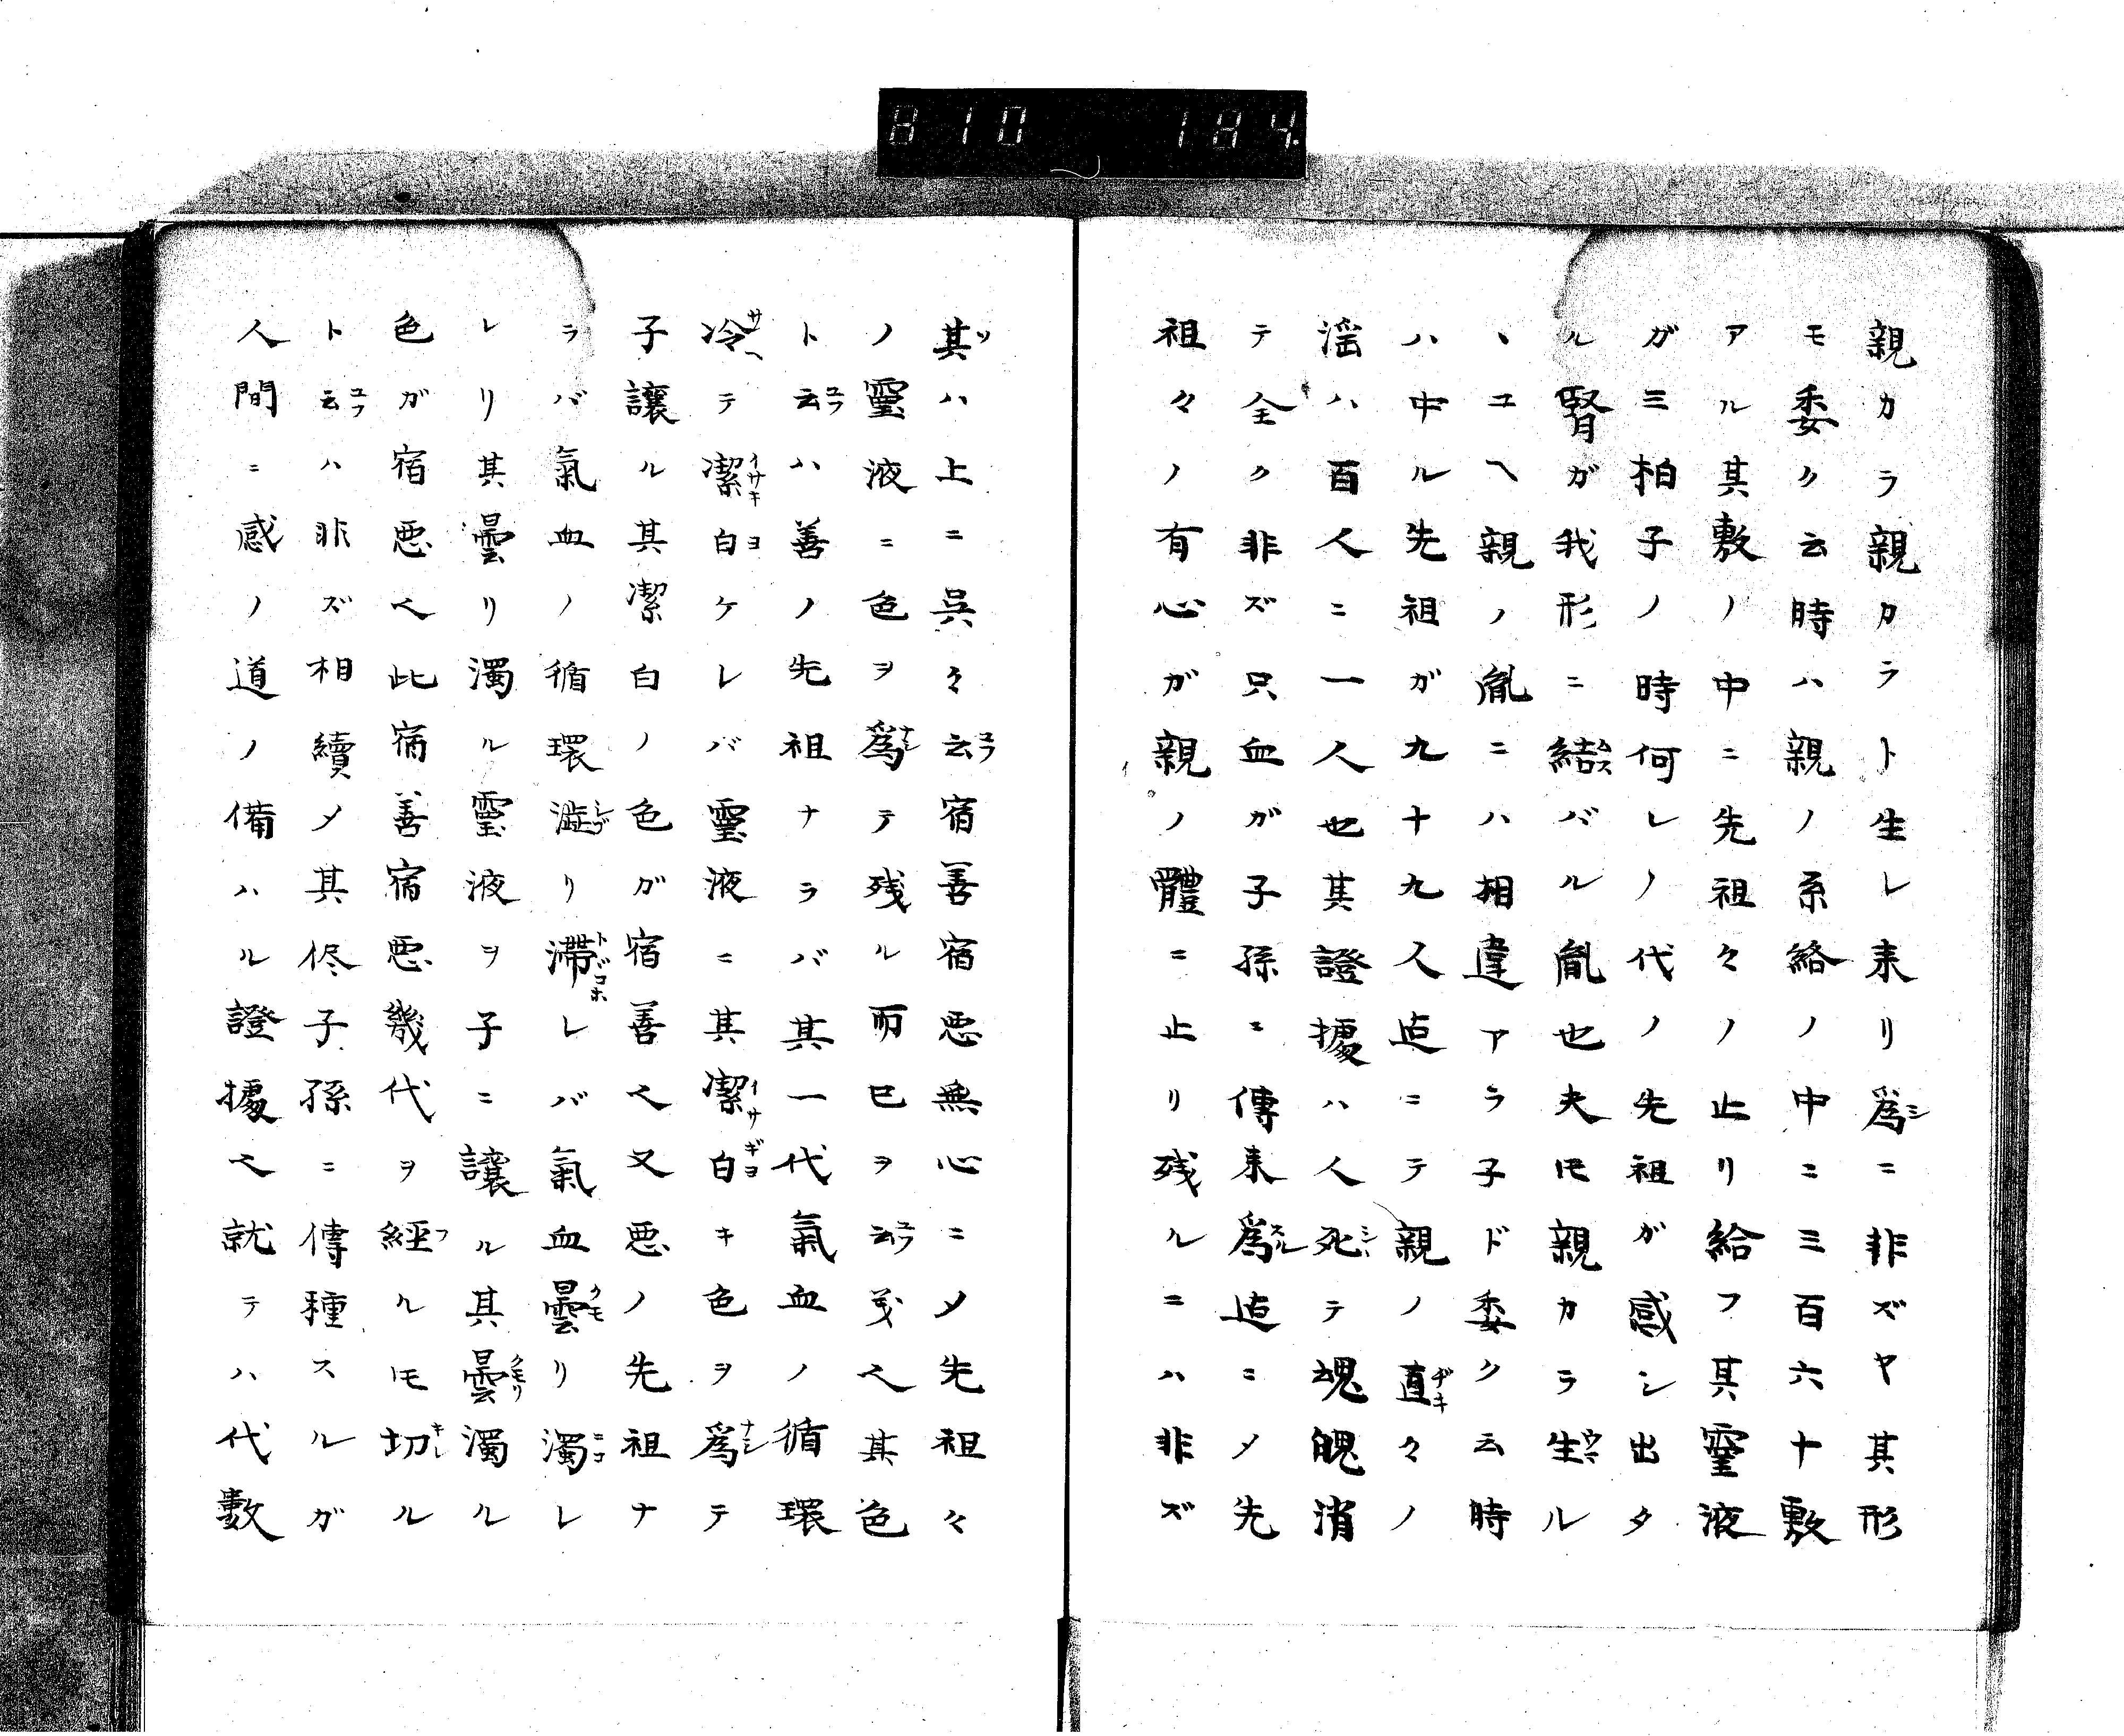 810 184.
親カラ親カラト生レ来リ爲ニ非ズヤ其形
モ委ク云時ハ親ノ系絡ノ中ニ三百六十敷
アル其敷ノ中ニ先祖々々ノ止リ給フ其靈液
ガ三柏子ノ時何レノ代ノ先祖ガ感シ出タ
ル腎ガ我形ニ結バル胤也夫ㇳモ親カラ生ル
ヽユヘ親ノ胤ニハ相違アラ子ド委ク云時
ハ中ル先祖ガ九十九人迠ニテ親ノ直々ノ
滛ハ百人ニ一人也其證據ハ人死テ魂魄消
テ全ク非ズ只血ガ子孫ニ傳来爲迠ニ〆先
祖々々ノ有心ガ親ノ體ニ止リ残ルニハ非ズ
其ハ上ニ呉々云宿善宿悪無心ニ〆先祖々々
ノ靈液ニ色ヲ爲テ残ル而已ヲ云義也其色
ト云ハ善ノ先祖ナラバ其一代氣血ノ循環
冷テ潔白ケレバ靈液ニ其潔白キ色ヲ爲テ
子讓ル其潔白ノ色ガ宿善也又悪ノ先祖ナ
ラバ氣血ノ循環澁リ滞レバ氣血曇リ濁レ
レリ其曇リ濁ル靈液ヲ子ニ讓ル其曇濁ル
色ガ宿悪也此宿善宿悪幾代ヲ経ルㇳモ切ル
ト云ハ非ズ相續〆其侭子孫ニ傳種スルガ
人間ニ感ノ道ノ備ハル證據也就テハ代数